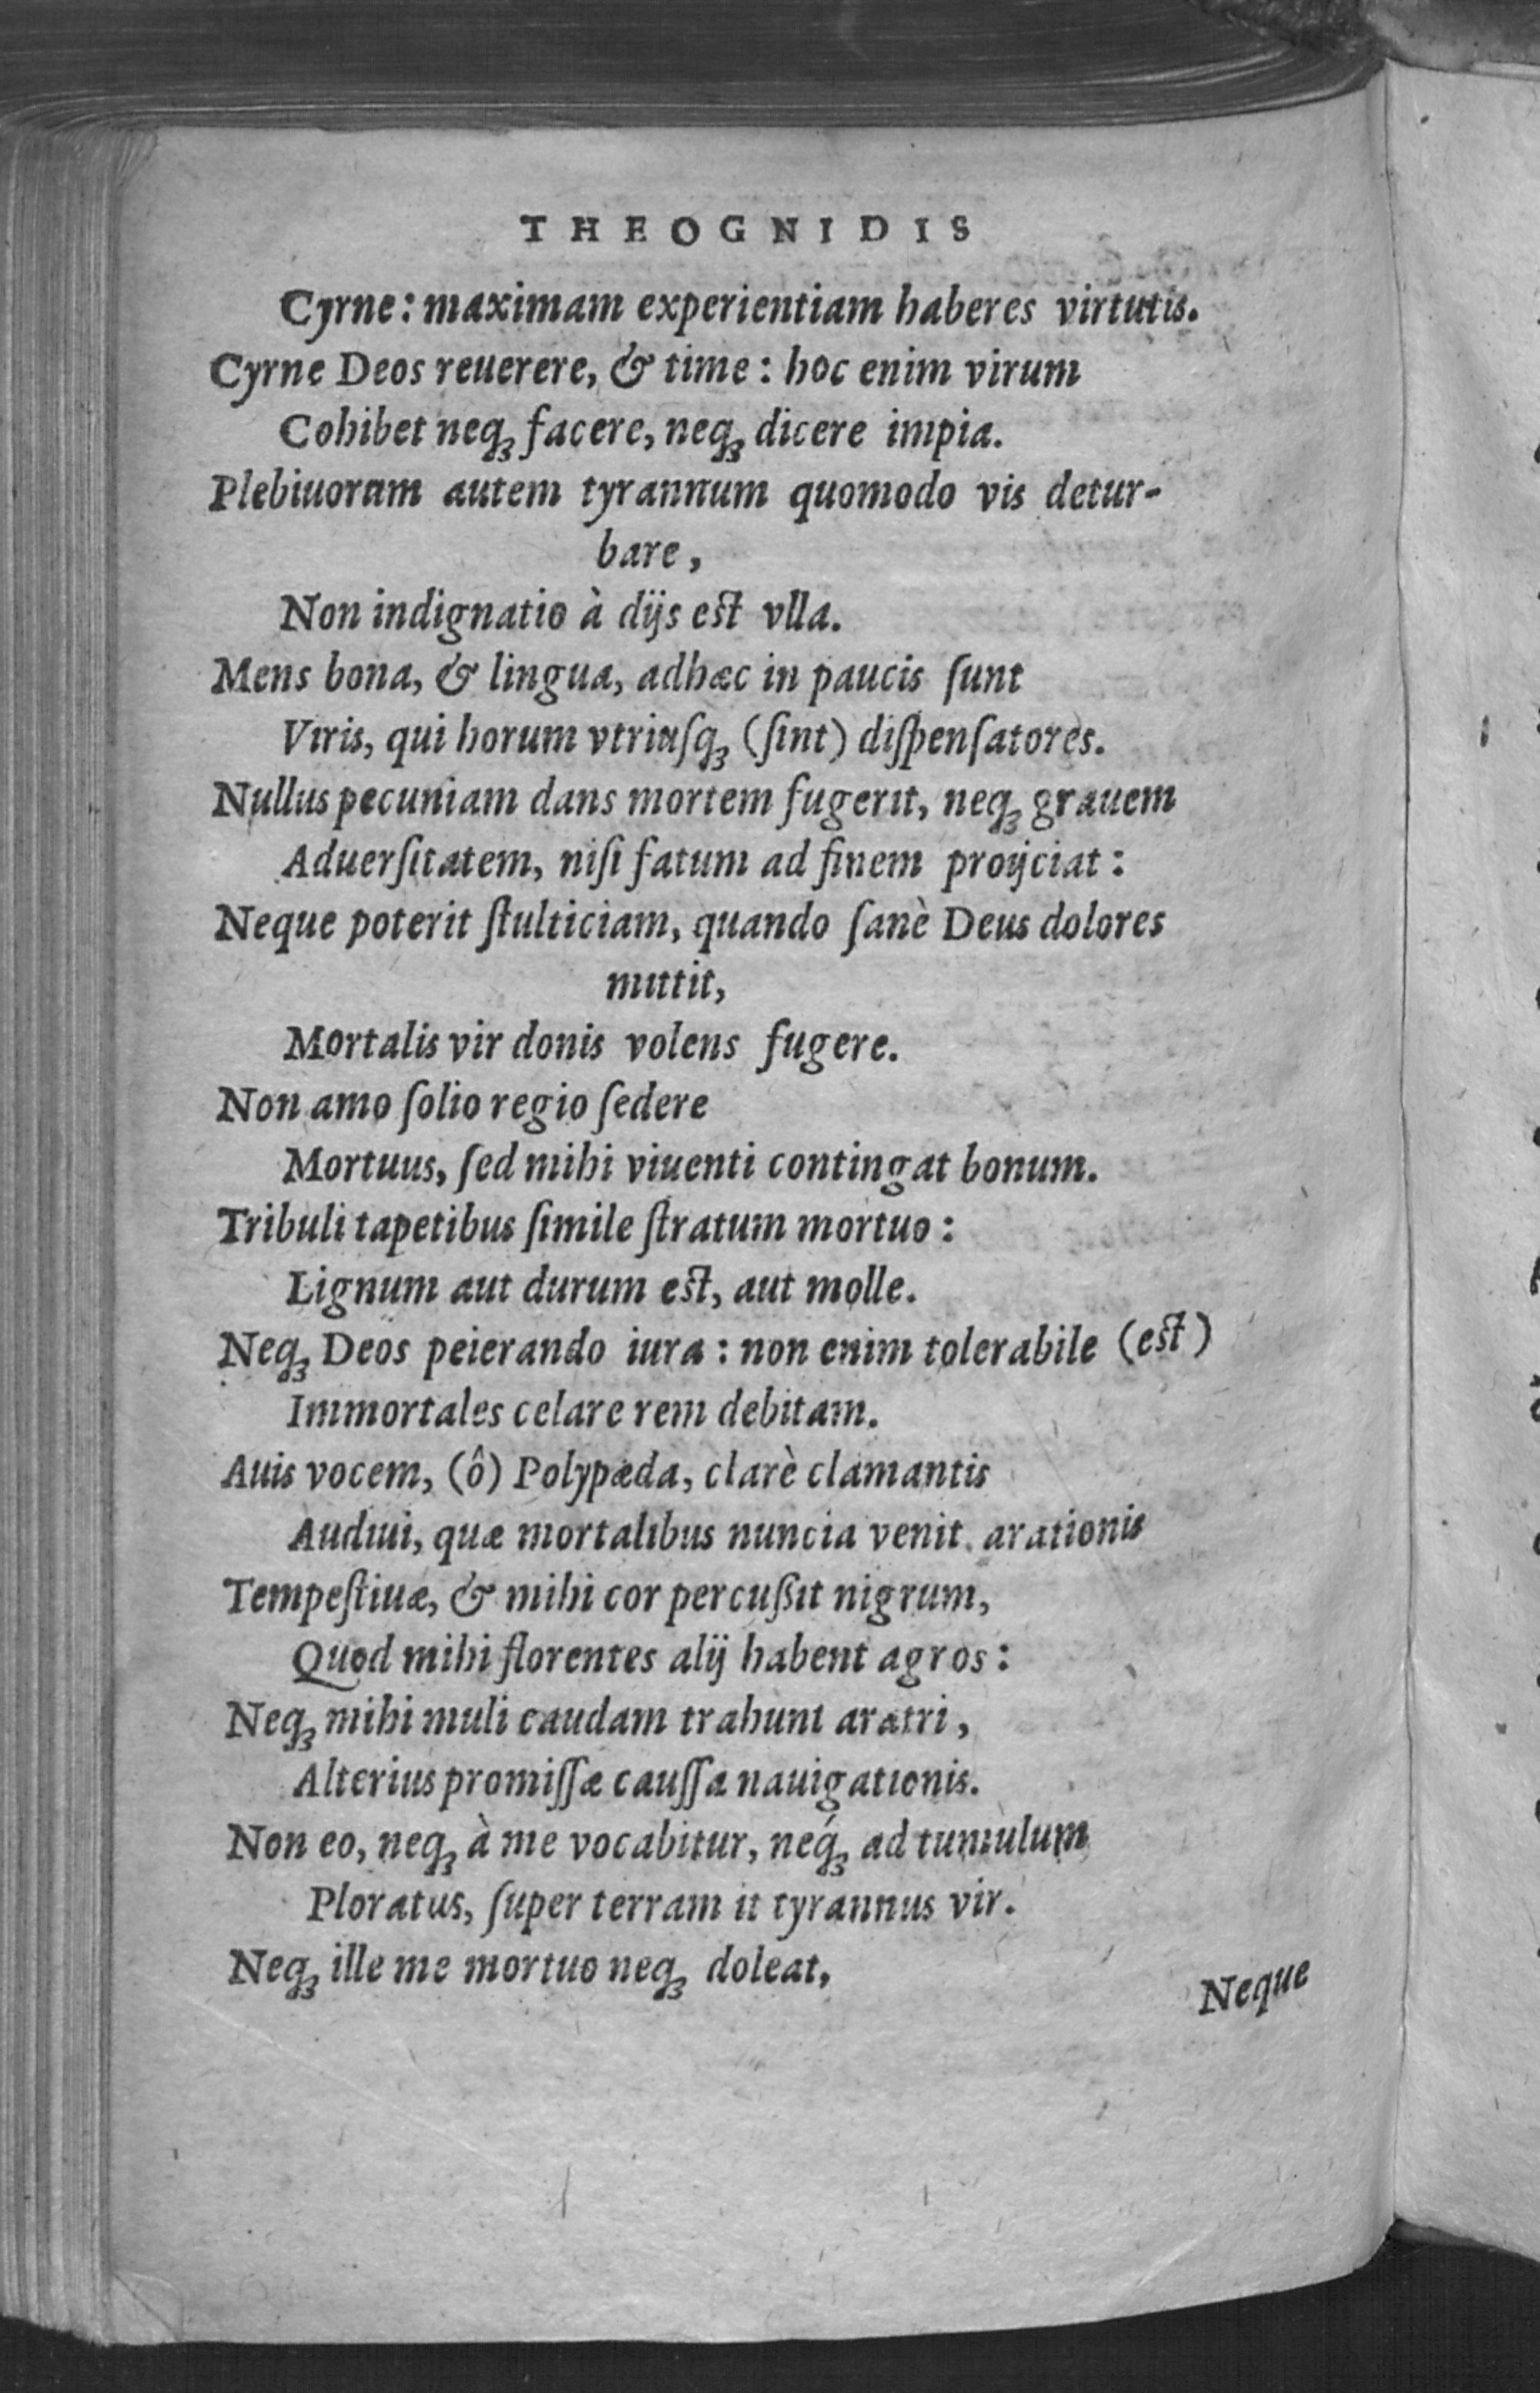 THEOGNIDIS
Cyrne: maximam experientiam haberes virtutis.
Cyrne Deos reuerere, & time: hoc enim virum
Cohibet neqꝫ facere, neqꝫ dicere impia.
Plebiuoram autem tyrannum quomodo vis detur-
bare,
Non indignatio à dijs est vlla.
Mens bona, & lingua, adhæc in paucis ſunt
Viris, qui horum vtriuſqꝫ (ſint) diſpenſatores.
Nullus pecuniam dans mortem fugerit, neqꝫ grauem
Aduerſitatem, niſi fatum ad finem proijciat:
Neque poterit ſtulticiam, quando ſanè Deus dolores
mittit,
Mortalis vir donis volens fugere.
Non amo ſolio regio ſedere
Mortuus, ſed mihi viuenti contingat bonum.
Tribuli tapetibus ſimile ſtratum mortuo:
Lignum aut durum est, aut molle.
Neqꝫ Deos peierando iura: non enim tolerabile (est)
Immortales celare rem debitam.
Auis vocem, (ô) Polypæda, clarè clamantis
Audiui, quæ mortalibus nuncia venit arationis
Tempeſtiuæ, & mihi cor percußit nigrum,
Quod mihi florentes alij habent agros:
Neqꝫ mihi muli caudam trahunt aratri,
Alterius promiſſæ cauſſa nauigationis.
Non eo, neqꝫ à me vocabitur, neq́ꝫ ad tumulum
Ploratus, ſuper terram it tyrannus vir.
Neqꝫ ille me mortuo neqꝫ doleat,
Neque